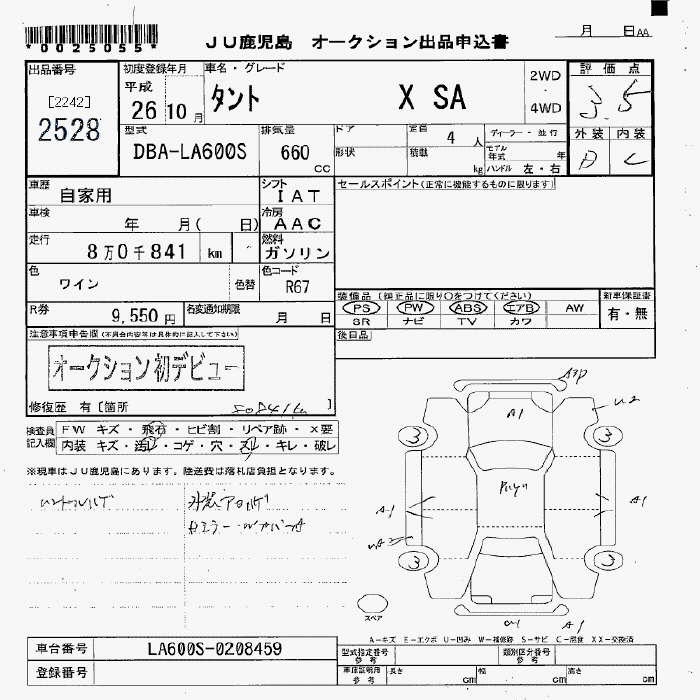 *0025055*
JU鹿児島 オークション出品申込書
月 日 AA
出品番号
[2242]
2528
初度登録年月
平成
26 10 月
車名・グレード
タント X SA
2WD
・
4WD
評価点
3.5
型式
DBA-LA600S
排気量
660
cc
ドア
定員
4 人
形状
積載
kg
ディーラー・並行
モデル
年式 年
ハンドル 左・右
外装 内装
D C
車歴
自家用
シフト
IAT
セールスポイント(正常に機能するものに限ります)
車検
年 月( 日)
冷房
AAC
走行
8万0千841 km
燃料
ガソリン
色
ワイン
色替
色コード
R67
R券
9,550円
名変通知期限
月 日
装備品 (純正品に限り○をつけてください)
PS PW ABS エアB AW
SR ナビ TV カワ
新車保証書
有・無
後日品
注意事項申告欄
オークション初デビュー
修復歴 有[箇所 ]
80841km
検査員
記入欄
FW キズ・飛石・ヒビ割・リペア跡・X要
内装 キズ・汚レ・コゲ・穴・スレ・キレ・破レ
※現車はJU鹿児島にあります。陸送費は落札店負担となります。
A1
U2
3
3
A1
A1
3
3
A1
スペア
A-キズ E-エクボ U-凹み W-補修跡 S-サビ C-腐食 XX-交換済
車台番号
LA600S-0208459
登録番号
型式指定番号
参考
類別区分番号
参考
車庫証明用
参考
長さ
cm
幅
cm
高さ
cm